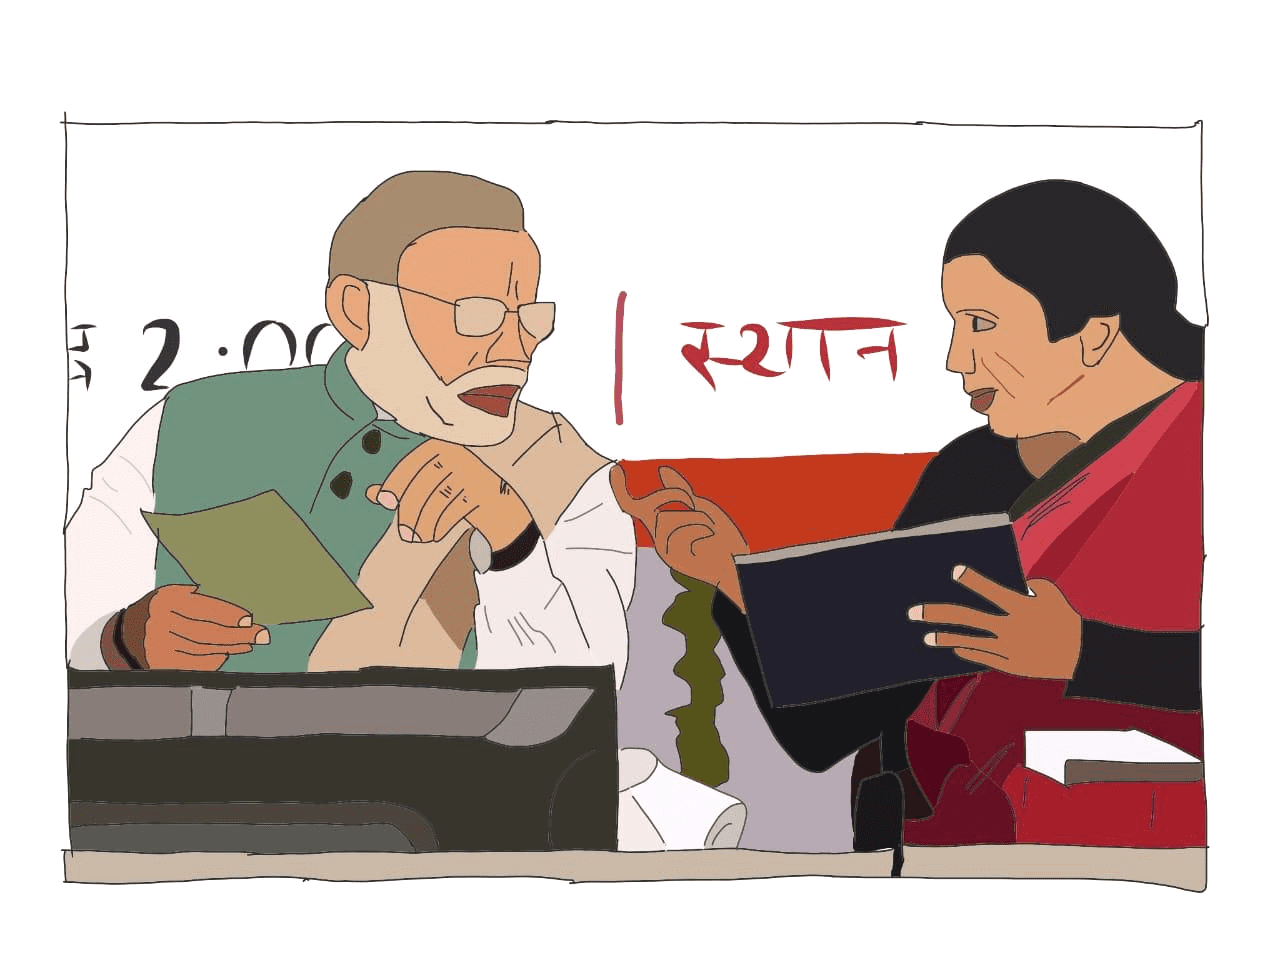 2:00 | स्थान